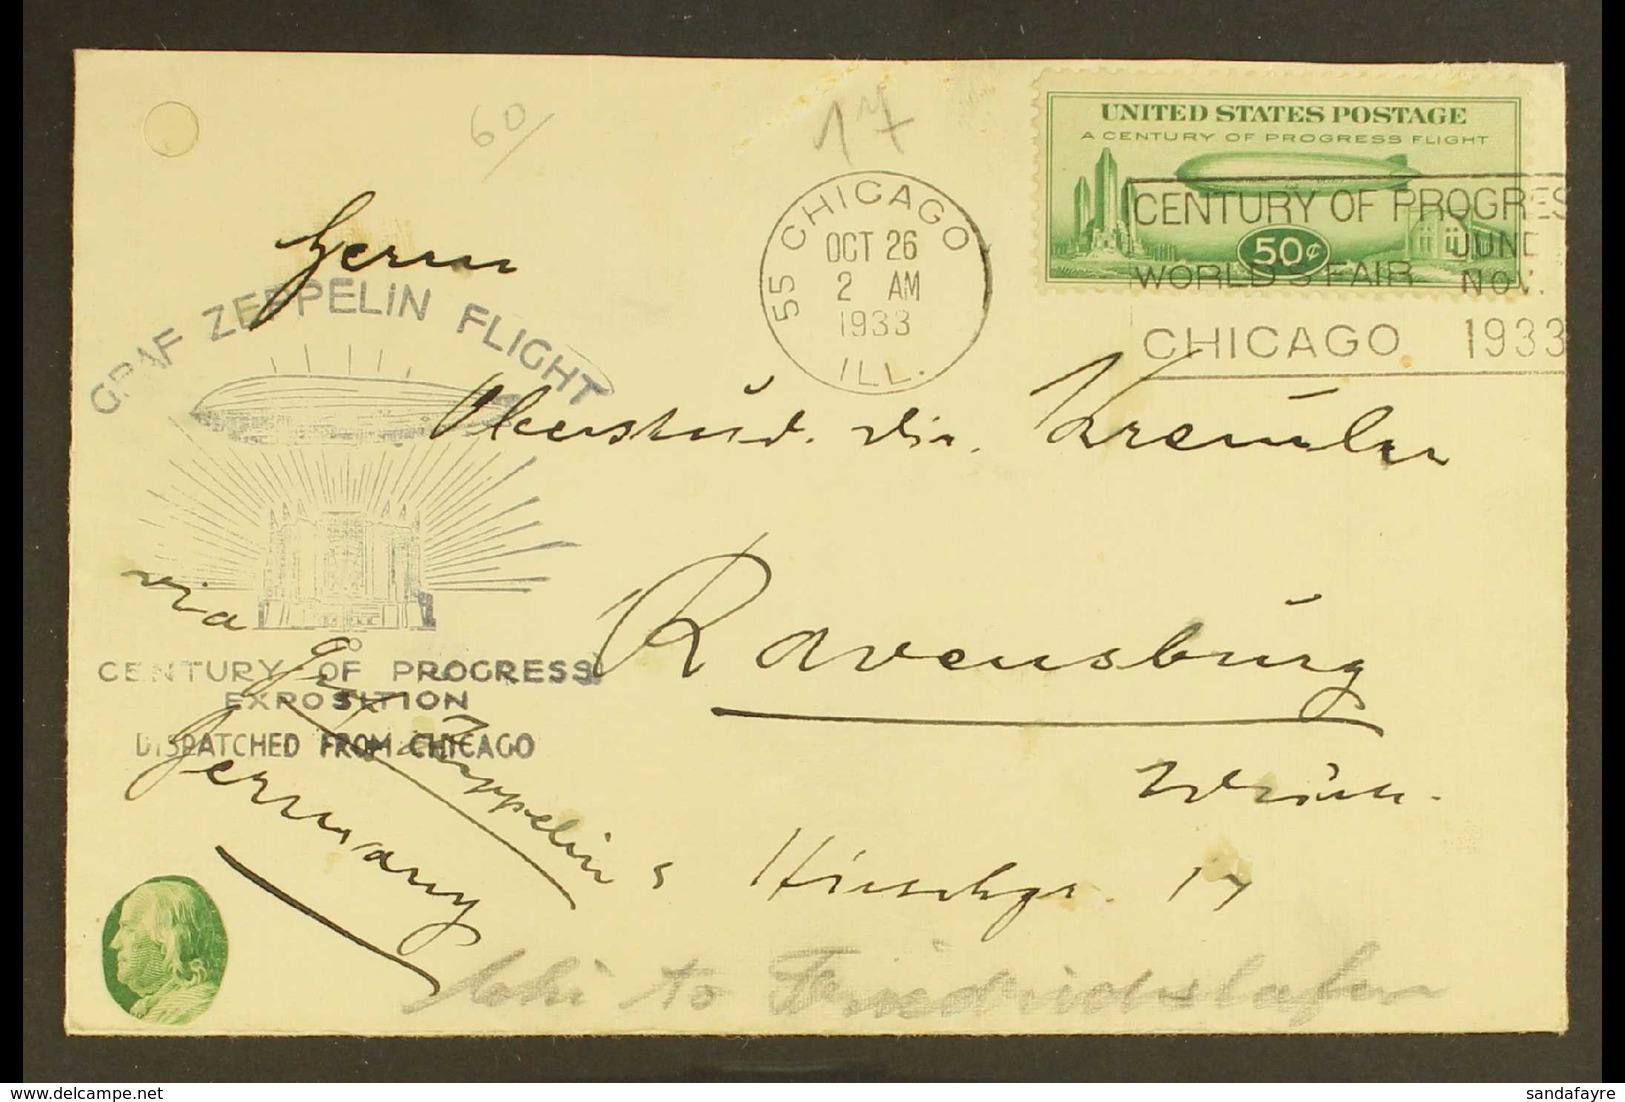 60/
17
UNITED STATES POSTAGE
A CENTURY OF PROGRESS FLIGHT
50¢
55 CHICAGO
OCT 26
2 AM
1933
ILL.
CENTURY OF PROGRES
JUNE
WORLD'S FAIR NOV.
CHICAGO 1933
Herrn
GRAF ZEPPELIN FLIGHT
Oberstud. Dir.
Ravensburg
Württ.
Hirschgr. 17
via Graf Zeppelin
Germany
CENTURY OF PROGRESS
EXPOSITION
DISPATCHED FROM CHICAGO
Chi to Friedrichshafen
sandafayre